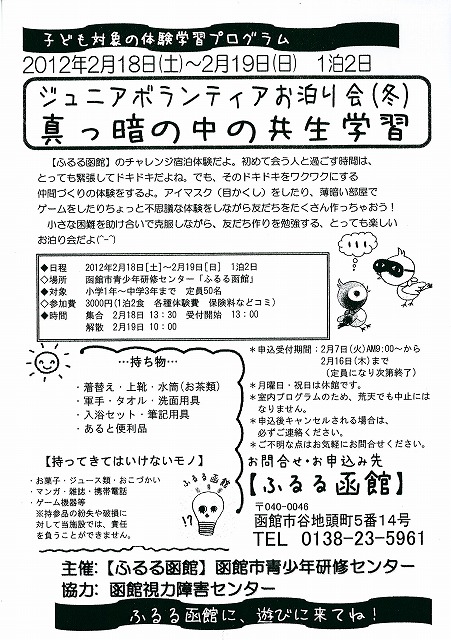 子ども対象の体験学習プログラム
2012年2月18日(土)～2月19日(日) 1泊2日
ジュニアボランティアお泊り会(冬)
真っ暗の中の共生学習
【ふるる函館】のチャレンジ宿泊体験だよ。初めて会う人と過ごす時間は、
とっても緊張してドキドキだよね。でも、そのドキドキをワクワクにする
仲間づくりの体験をするよ。アイマスク(目かくし)をしたり、薄暗い部屋で
ゲームをしたりちょっと不思議な体験をしながら友だちをたくさん作っちゃおう!
小さな困難を助け合いで克服しながら、友だち作りを勉強する、とっても楽しい
お泊り会だよ(^-^)
◆日程 2012年2月18日[土]～2月19日[日] 1泊2日
◇場所 函館市青少年研修センター「ふるる函館」
◆対象 小学1年～中学3年まで 定員50名
◇参加費 3000円(1泊2食 各種体験費 保険料などコミ)
◆時間 集合 2月18日 13:30 受付開始 13:00
解散 2月19日 10:00
…持ち物…
・着替え・上靴・水筒(お茶類)
・軍手・タオル・洗面用具
・入浴セット・筆記用具
・あると便利品
【持ってきてはいけないモノ】
・お菓子・ジュース類・おこづかい
・マンガ・雑誌・携帯電話
・ゲーム機器等
※持参品の紛失や破損に
対して当施設では、責任
を負うことができません。
ふるる函館
!?
＊申込受付期間：2月7日(火)AM9:00～から
2月16日(木)まで
(定員になり次第終了)
＊月曜日・祝日は休館です。
＊室内プログラムのため、荒天でも中止には
なりません。
＊申込後キャンセルされる場合は、
必ずご連絡ください。
＊ご不明な点はお気軽にお問合せください。
お問合せ・お申込み先
【ふるる函館】
〒040-0046
函館市谷地頭町5番14号
TEL 0138-23-5961
主催:【ふるる函館】函館市青少年研修センター
協力: 函館視力障害センター
ふるる函館に、遊びに来てね!